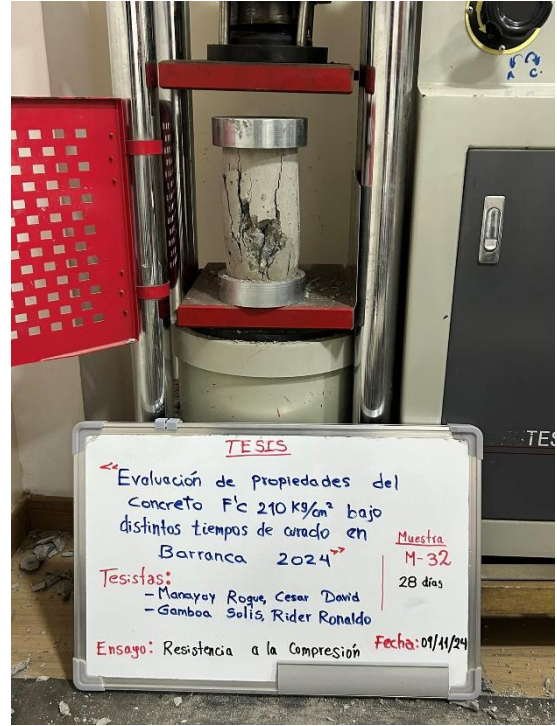 A C.
TES
TESIS
"Evaluación de propiedades del
Concreto F'c 210 Kg/cm² bajo
distintos tiempos de curado en
Barranca 2024"
Muestra
M-32
28 días
Tesistas:
- Manayay Roque, Cesar David
- Gamboa Solis, Rider Ronaldo
Ensayo: Resistencia a la Compresión
Fecha: 09/11/24